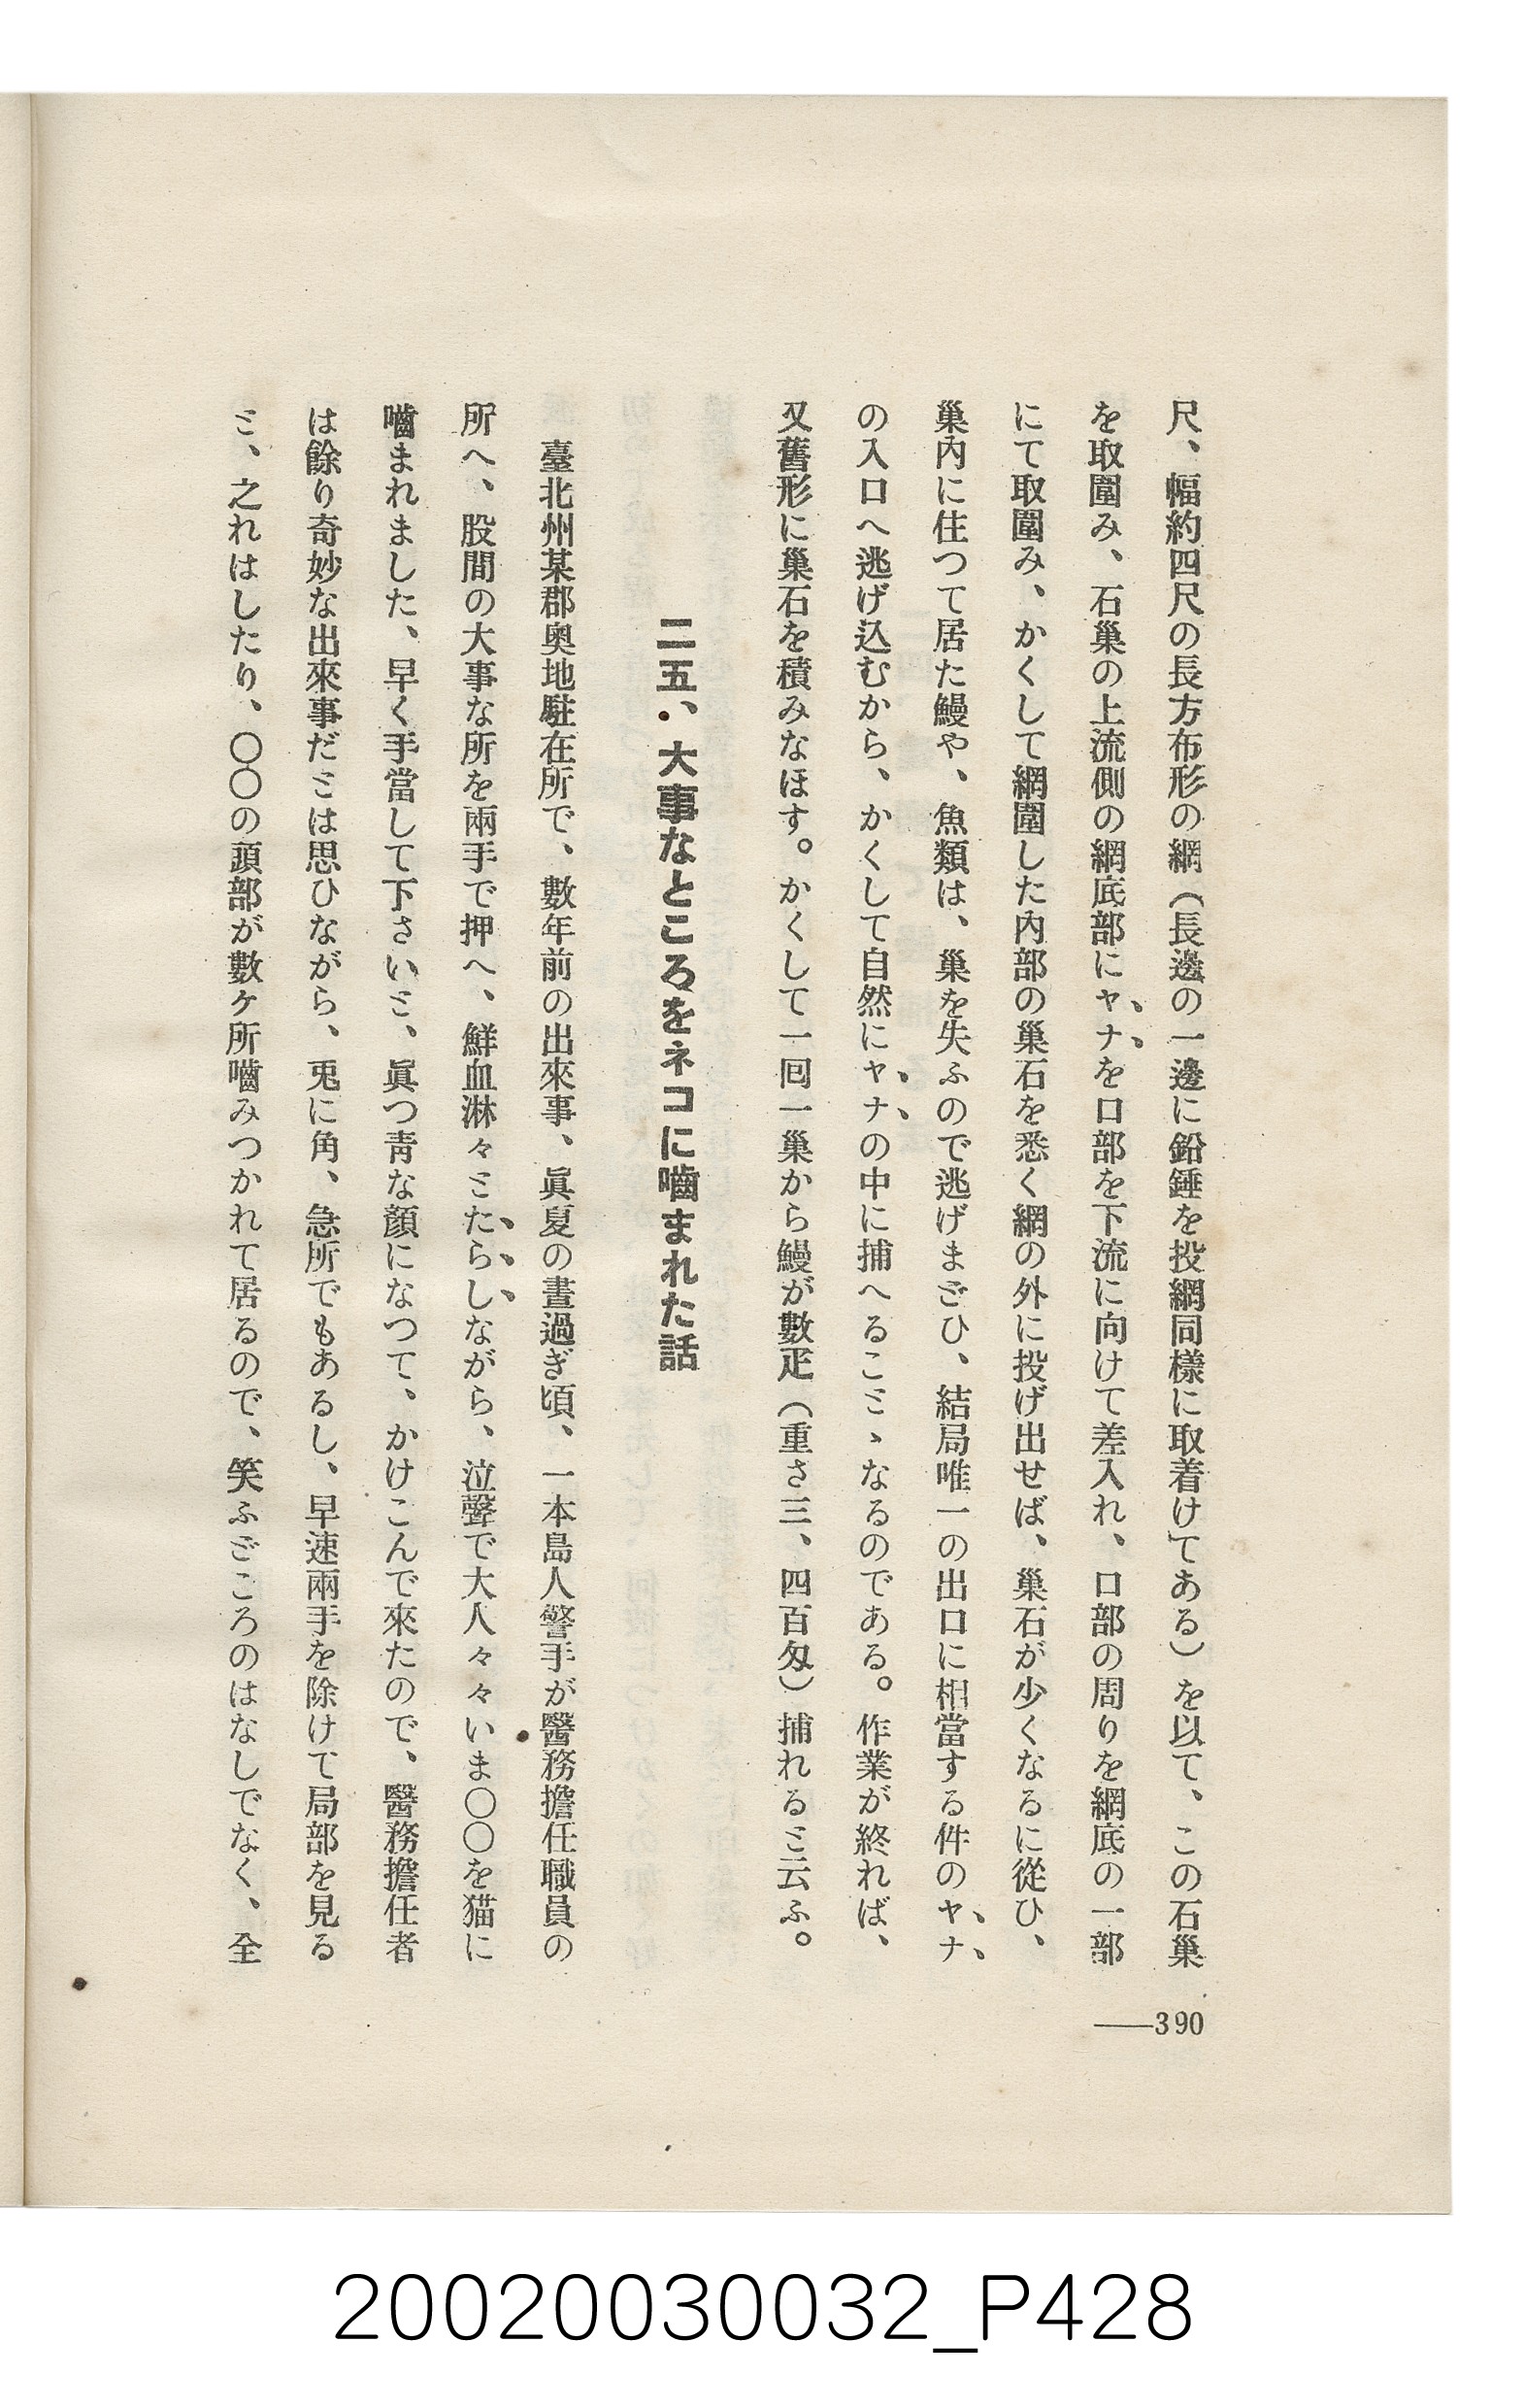 尺、幅約四尺の長方布形の網（長邊の一邊に鉛錘を投網同樣に取着けてある）を以て、この石巢
を取圍み、石巢の上流側の網底部にヤナを口部を下流に向けて差入れ、口部の周りを網底の一部
にて取圍み、かくして網圍した內部の巢石を悉く網の外に投げ出せば、巢石が少くなるに從ひ、
巢內に住つて居た鰻や、魚類は、巢を失ふので逃げまどひ、結局唯一の出口に相當する件のヤナ
の入口へ逃げ込むから、かくして自然にヤナの中に捕へることゝなるのである。作業が終れば、
又舊形に巢石を積みなほす。かくして一回一巢から鰻が數疋（重さ三、四百匁）捕れると云ふ。
二五、大事なところをネコに嚙まれた話
臺北州某郡奧地駐在所で、數年前の出來事、眞夏の晝過ぎ頃、一本島人警手が醫務擔任職員の
所へ、股間の大事な所を兩手で押へ、鮮血淋々とたらしながら、泣聲で大人々々いま〇〇を猫に
嚙まれました、早く手當して下さいと、眞つ靑な顏になつて、かけこんで來たので、醫務擔任者
は餘り奇妙な出來事だとは思ひながら、兎に角、急所でもあるし、早速兩手を除けて局部を見る
と、之れはしたり、〇〇の頭部が數ケ所嚙みつかれて居るので、笑ふどころのはなしでなく、全
——390
20020030032_P428